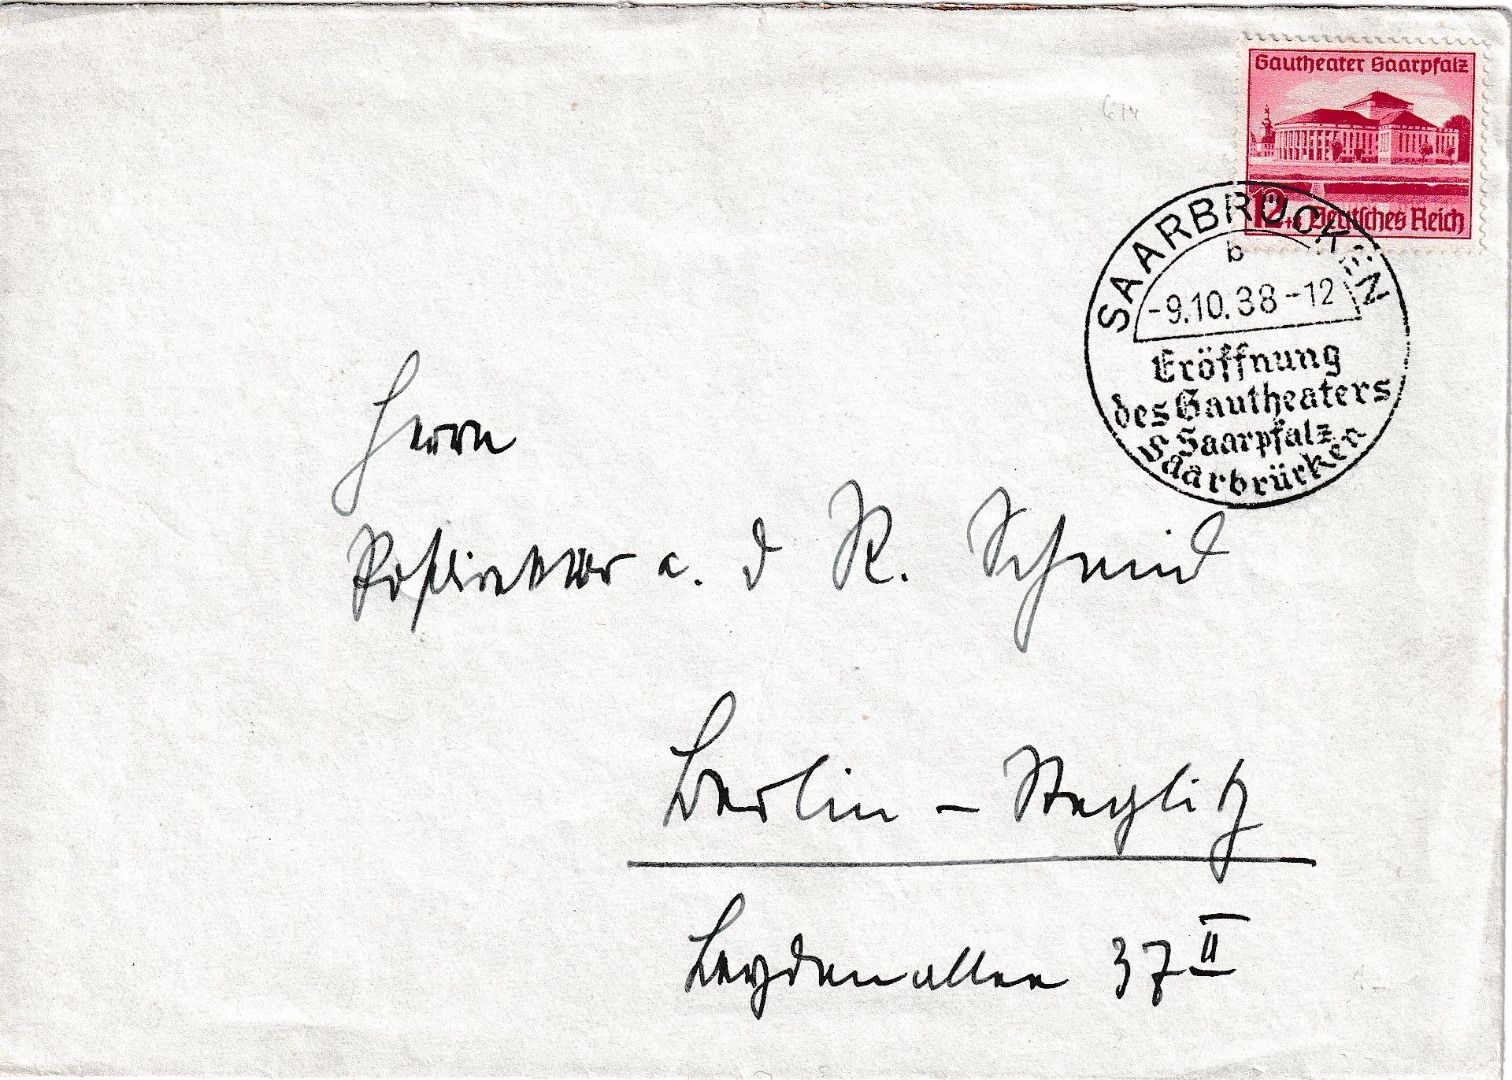 674
Gautheater Saarpfalz
12 Deutsches Reich
SAARBRÜCKEN
b
-9.10.38-12
Eröffnung
des Gautheaters
Saarpfalz
Saarbrücken
Herrn
Postdirektor a. d R. Schmid
Berlin - Steglitz
Leydenallee 37 II